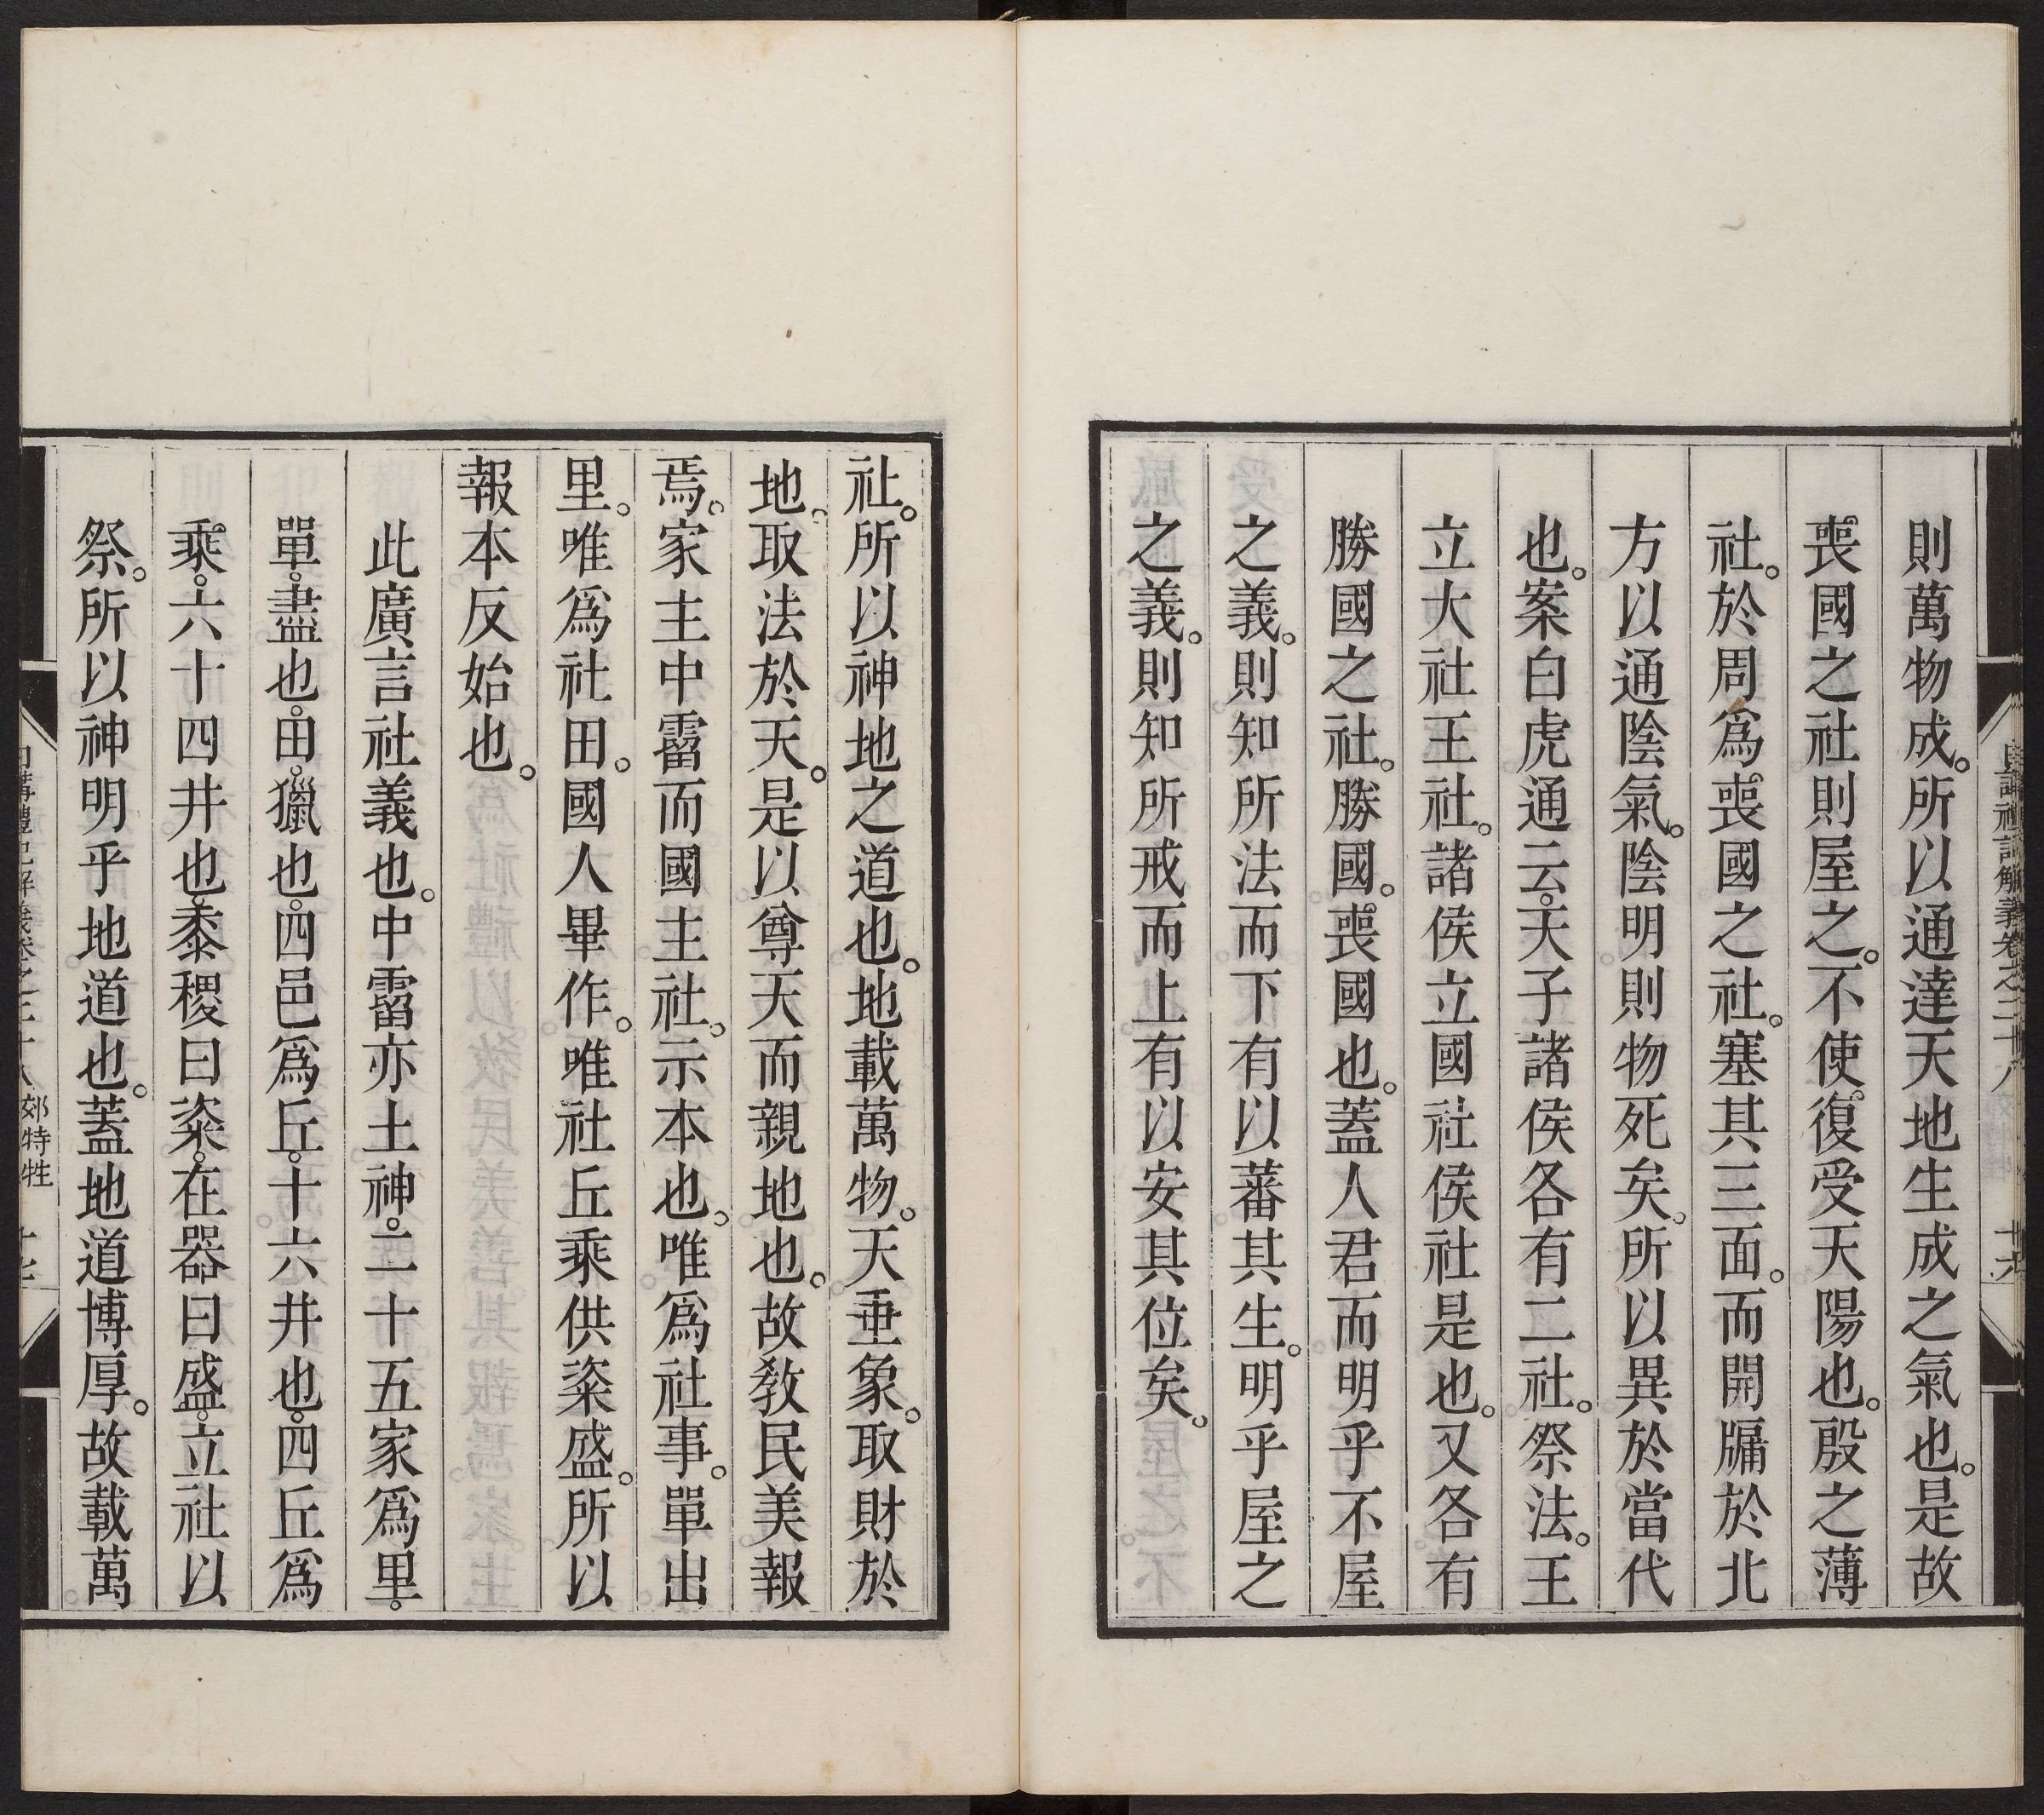 則萬物成。所以通達天地生成之氣也。是故
喪國之社則屋之。不使復受天陽也。殷之薄
社。於周爲喪國之社。塞其三面。而開牖於北
方以通陰氣。陰明則物死矣。所以異於當代
也。案白虎通云。天子諸侯各有二社。祭法。王
立大社王社。諸侯立國社侯社是也。又各有
勝國之社。勝國。喪國也。蓋人君而明乎不屋
之義。則知所法而下有以蕃其生。明乎屋之
之義。則知所戒而上有以安其位矣。
社。所以神地之道也。地載萬物。天垂象。取財於
地。取法於天。是以尊天而親地也。故敎民美報
焉。家主中霤而國主社。示本也。唯爲社事。單出
里。唯爲社田。國人畢作。唯社丘乘供粢盛。所以
報本反始也。
此廣言社義也。中霤亦土神。二十五家爲里。
單。盡也。田。獵也。四邑爲丘。十六井也。四丘爲
乘。六十四井也。黍稷曰粢。在器曰盛。立社以
祭。所以神明乎地道也。蓋地道博厚。故載萬
郊特牲